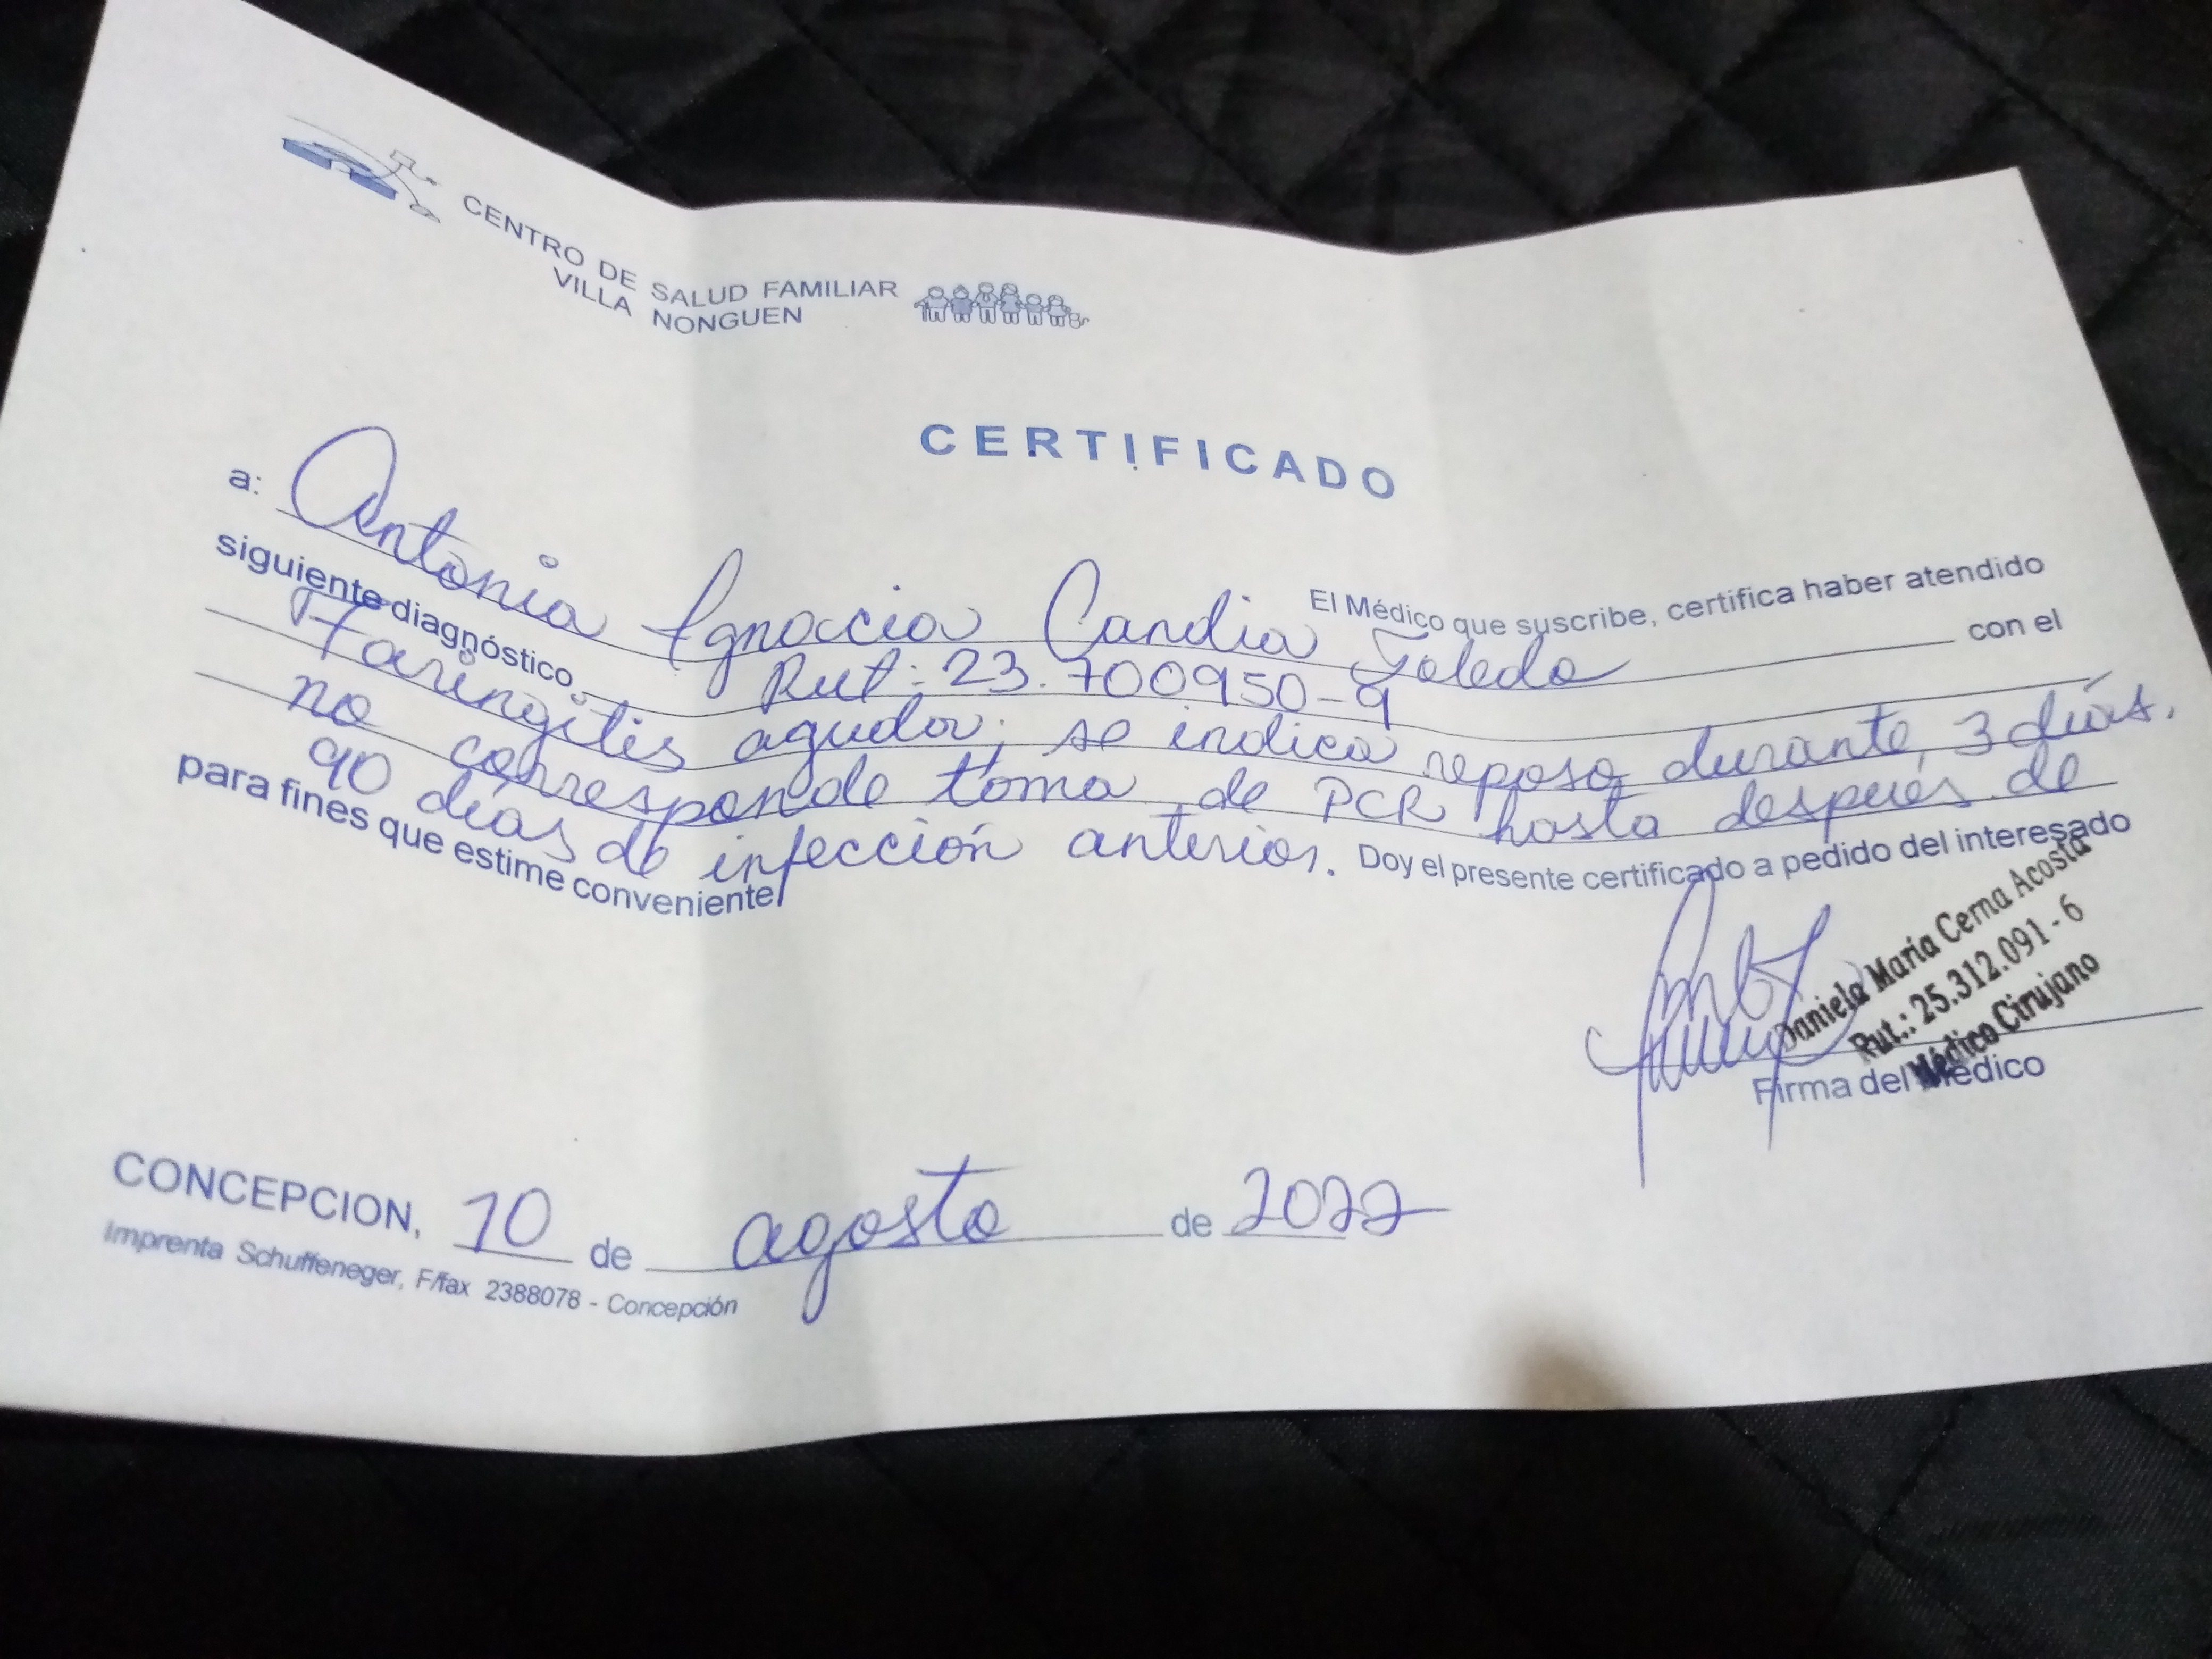 CENTRO DE SALUD FAMILIAR
VILLA NONGUEN
CERTIFICADO
El Médico que suscribe, certifica haber atendido
a: Antonia Ignaccia Candia Toledo con el
siguiente diagnóstico Rut: 23.700950-9
Faringitis aguda; se indica reposo durante 3 días.
no corresponde toma de PCR hasta después de
90 días de infección anterior. Doy el presente certificado a pedido del interesado
para fines que estime conveniente
Daniela María Cerna Acosta
Rut.: 25.312.091-6
Médico Cirujano
Firma del Médico
CONCEPCION, 10 de agosto de 2022
Imprenta Schuffeneger, F/fax 2388078 - Concepción